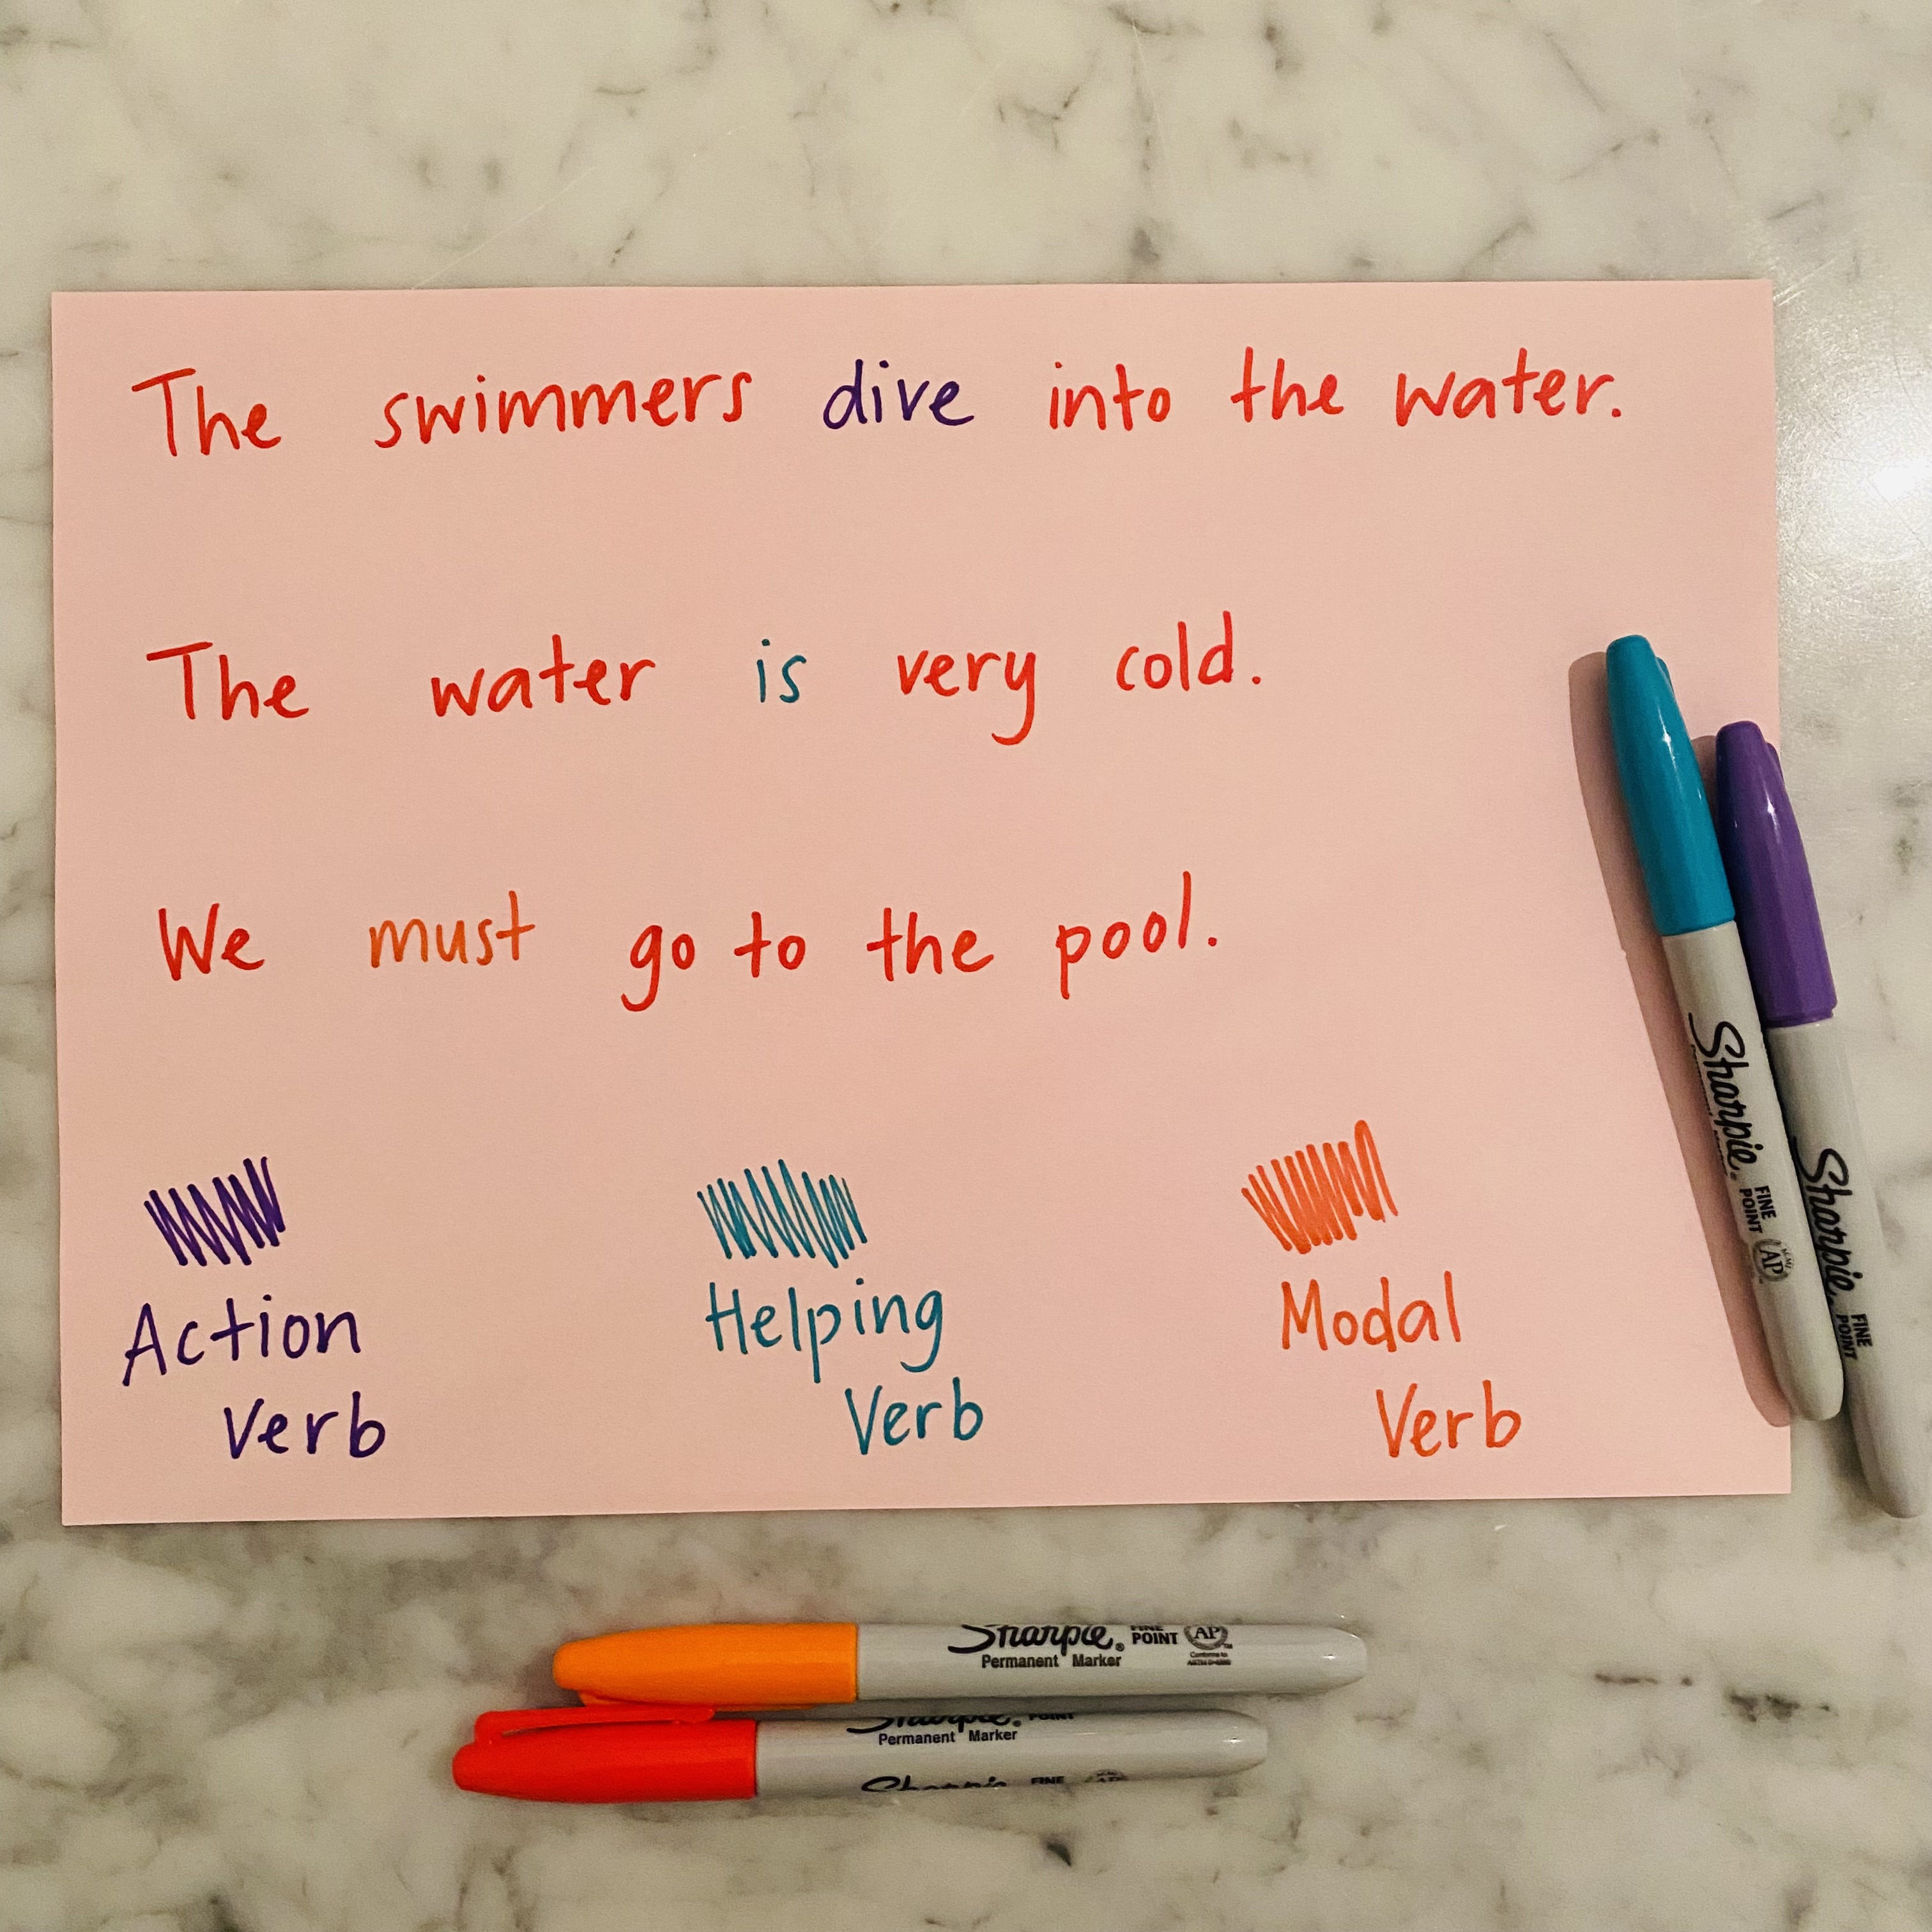 The swimmers dive into the water.
The water is very cold.
We must go to the pool.
Action
Verb
Helping
Verb
Modal
Verb
Sharpie.
FINE
POINT
AP
Sharpie.
FINE
POINT
Sharpie.® FINE
POINT AP
Permanent Marker
Conforms to
ASTM D-4236
Sharpie.® POINT
Permanent Marker
Sharpie FINE AP